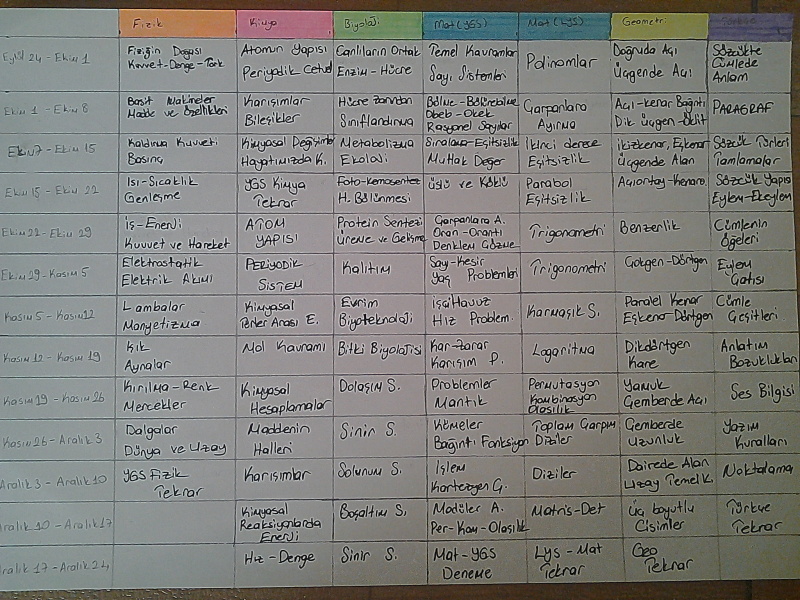 Fizik Kimya Biyoloji Mat(YGS) Mat(LYS) Geometri Türkçe
Eylül 24 - Ekim 1 Fiziğin Doğası Kuvvet-Denge-Tork Atomun Yapısı Periyodik Cetvel Canlıların Ortak Enzim-Hücre Temel Kavramlar Sayı Sistemleri Polinomlar Doğruda Açı Üçgende Açı Sözcükte Cümlede Anlam
Ekim 1 - Ekim 8 Basit Makineler Madde ve Özellikleri Karışımlar Bileşikler Hücre Zarından Sınıflandırma Bölme-Bölünebilme Obeb-Okek Rasyonel Sayılar Çarpanlara Ayırma Açı-kenar Bağıntı Dik üçgen-Öklit PARAGRAF
Ekim 7 - Ekim 15 Kaldırma Kuvveti Basınç Kimyasal Değişimler Hayatımızda K. Metabolizma Ekoloji Sıralama-Eşitsizlik Mutlak Değer İkinci derece Eşitsizlik İkizkenar, Eşkenar Üçgende Alan Sözcük Türleri Tamlamalar
Ekim 15 - Ekim 22 Isı-Sıcaklık Genleşme YGS Kimya Tekrar Foto-Kemosentez H. Bölünmesi Üslü ve Köklü Parabol Eşitsizlik Açıortay-Kenaro. Sözcük Yapısı Eylem-Ekeylem
Ekim 22 - Ekim 29 İş-Enerji Kuvvet ve Hareket ATOM YAPISI Protein Sentezi Üreme ve Gelişme Çarpanlara A. Oran-Orantı Denklem Çözme Trigonometri Benzerlik Cümlenin Öğeleri
Ekim 29 - Kasım 5 Elektrostatik Elektrik Akımı PERİYODİK SİSTEM Kalıtım Sayı-Kesir Yaş Problemleri Trigonometri Çokgen-Dörtgen Eylem Çatısı
Kasım 5 - Kasım 12 Lambalar Manyetizma Kimyasal Türler Arası E. Evrim Biyoteknoloji İşçi Havuz Hız Problem. Karmaşık S. Paralel Kenar Eşkenar Dörtgen Cümle Çeşitleri
Kasım 12 - Kasım 19 Işık Aynalar Mol Kavramı Bitki Biyolojisi Kar-Zarar Karışım P. Logaritma Dikdörtgen Kare Anlatım Bozuklukları
Kasım 19 - Kasım 26 Kırılma-Renk Mercekler Kimyasal Hesaplamalar Dolaşım S. Problemler Mantık Permutasyon Kombinasyon Olasılık Yamuk Çemberde Açı Ses Bilgisi
Kasım 26 - Aralık 3 Dalgalar Dünya ve Uzay Maddenin Halleri Sinir S. Kümeler Bağıntı Fonksiyon Toplam Çarpım Diziler Çemberde Uzunluk Yazım Kuralları
Aralık 3 - Aralık 10 YGS Fizik Tekrar Karışımlar Solunum S. İşlem Kartezyen Ç. Diziler Dairede Alan Uzay Temel K. Noktalama
Aralık 10 - Aralık 17 Kimyasal Reaksiyonlarda Enerji Boşaltım S. Modüler A. Per-Kom-Olasılık Matris-Det Üç boyutlu Cisimler Türkçe Tekrar
Aralık 17 - Aralık 24 Hız-Denge Sinir S. Mat-YGS Deneme Lys-Mat Tekrar Geo Tekrar